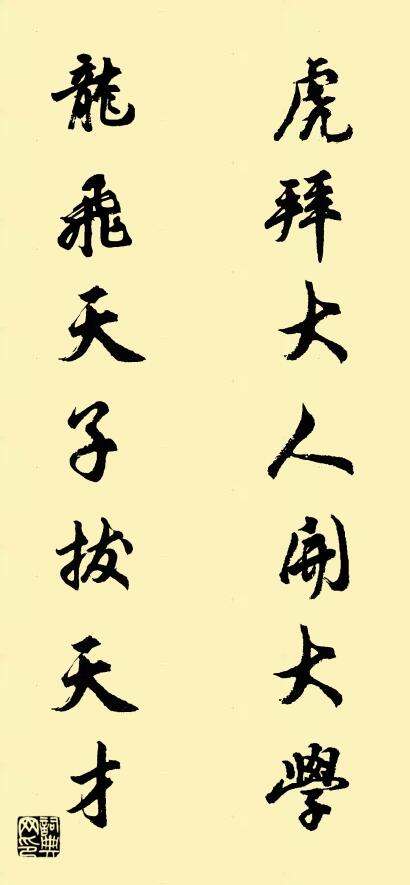 虎拜大人開大學
龍飛天子拔天才
詞典網印